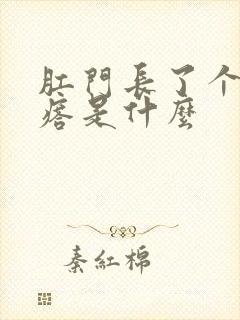 肛門長了个
痞是什麼
秦紅棉